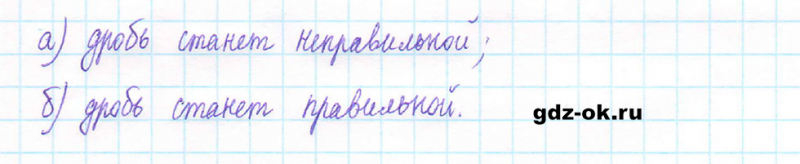 а) дробь станет неправильной;
б) дробь станет правильной.
gdz-ok.ru